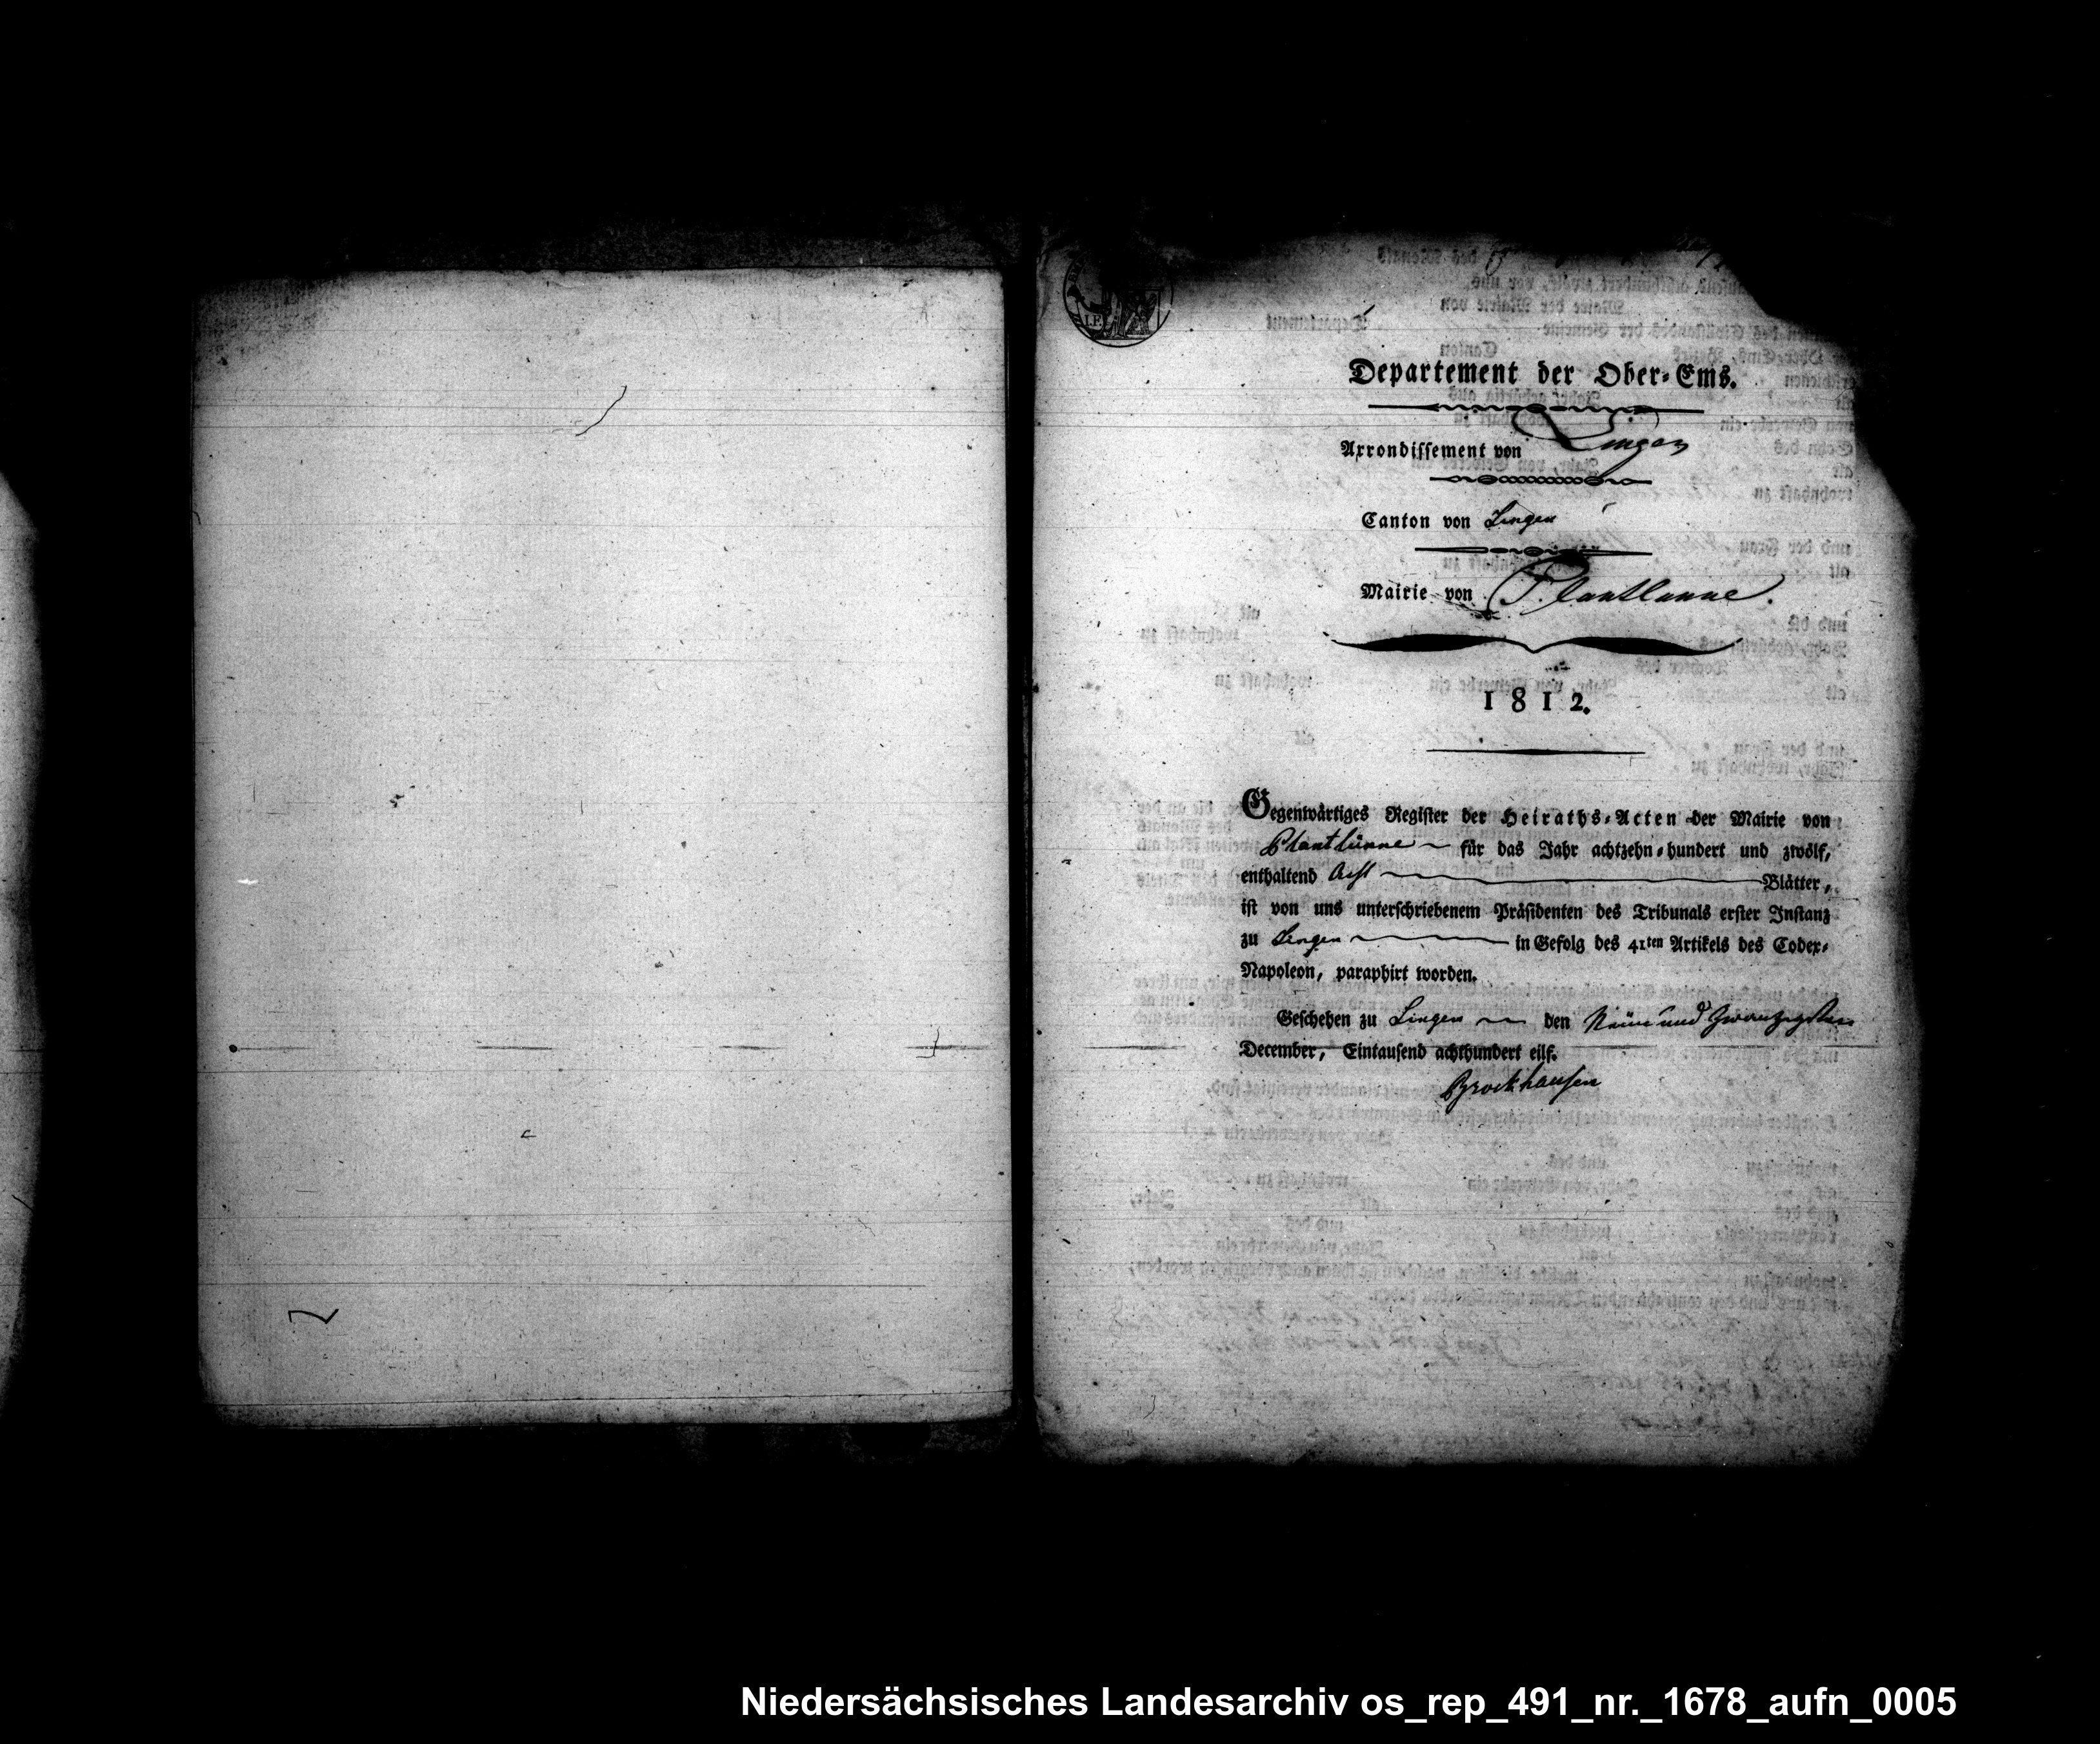 Departement der Ober-Ems.
Arrondissement von Lingen
Canton von Lingen
Mairie von Plantlunne.
1812.
Gegenwärtiges Register der Heiraths-Acten der Mairie von
Plantlünne für das Jahr achtzehn-hundert und zwölf,
enthaltend Acht Blätter,
ist von uns unterschriebenem Präsidenten des Tribunals erster Instanz
zu Lingen in Gefolg des 41ten Artikels des Codex-
Napoleon, paraphirt worden.
Geschehen zu Lingen den Neün und Zwanzigsten
December, Eintausend achthundert eilf.
Brockhausen
Niedersächsisches Landesarchiv os_rep_491_nr._1678_aufn_0005